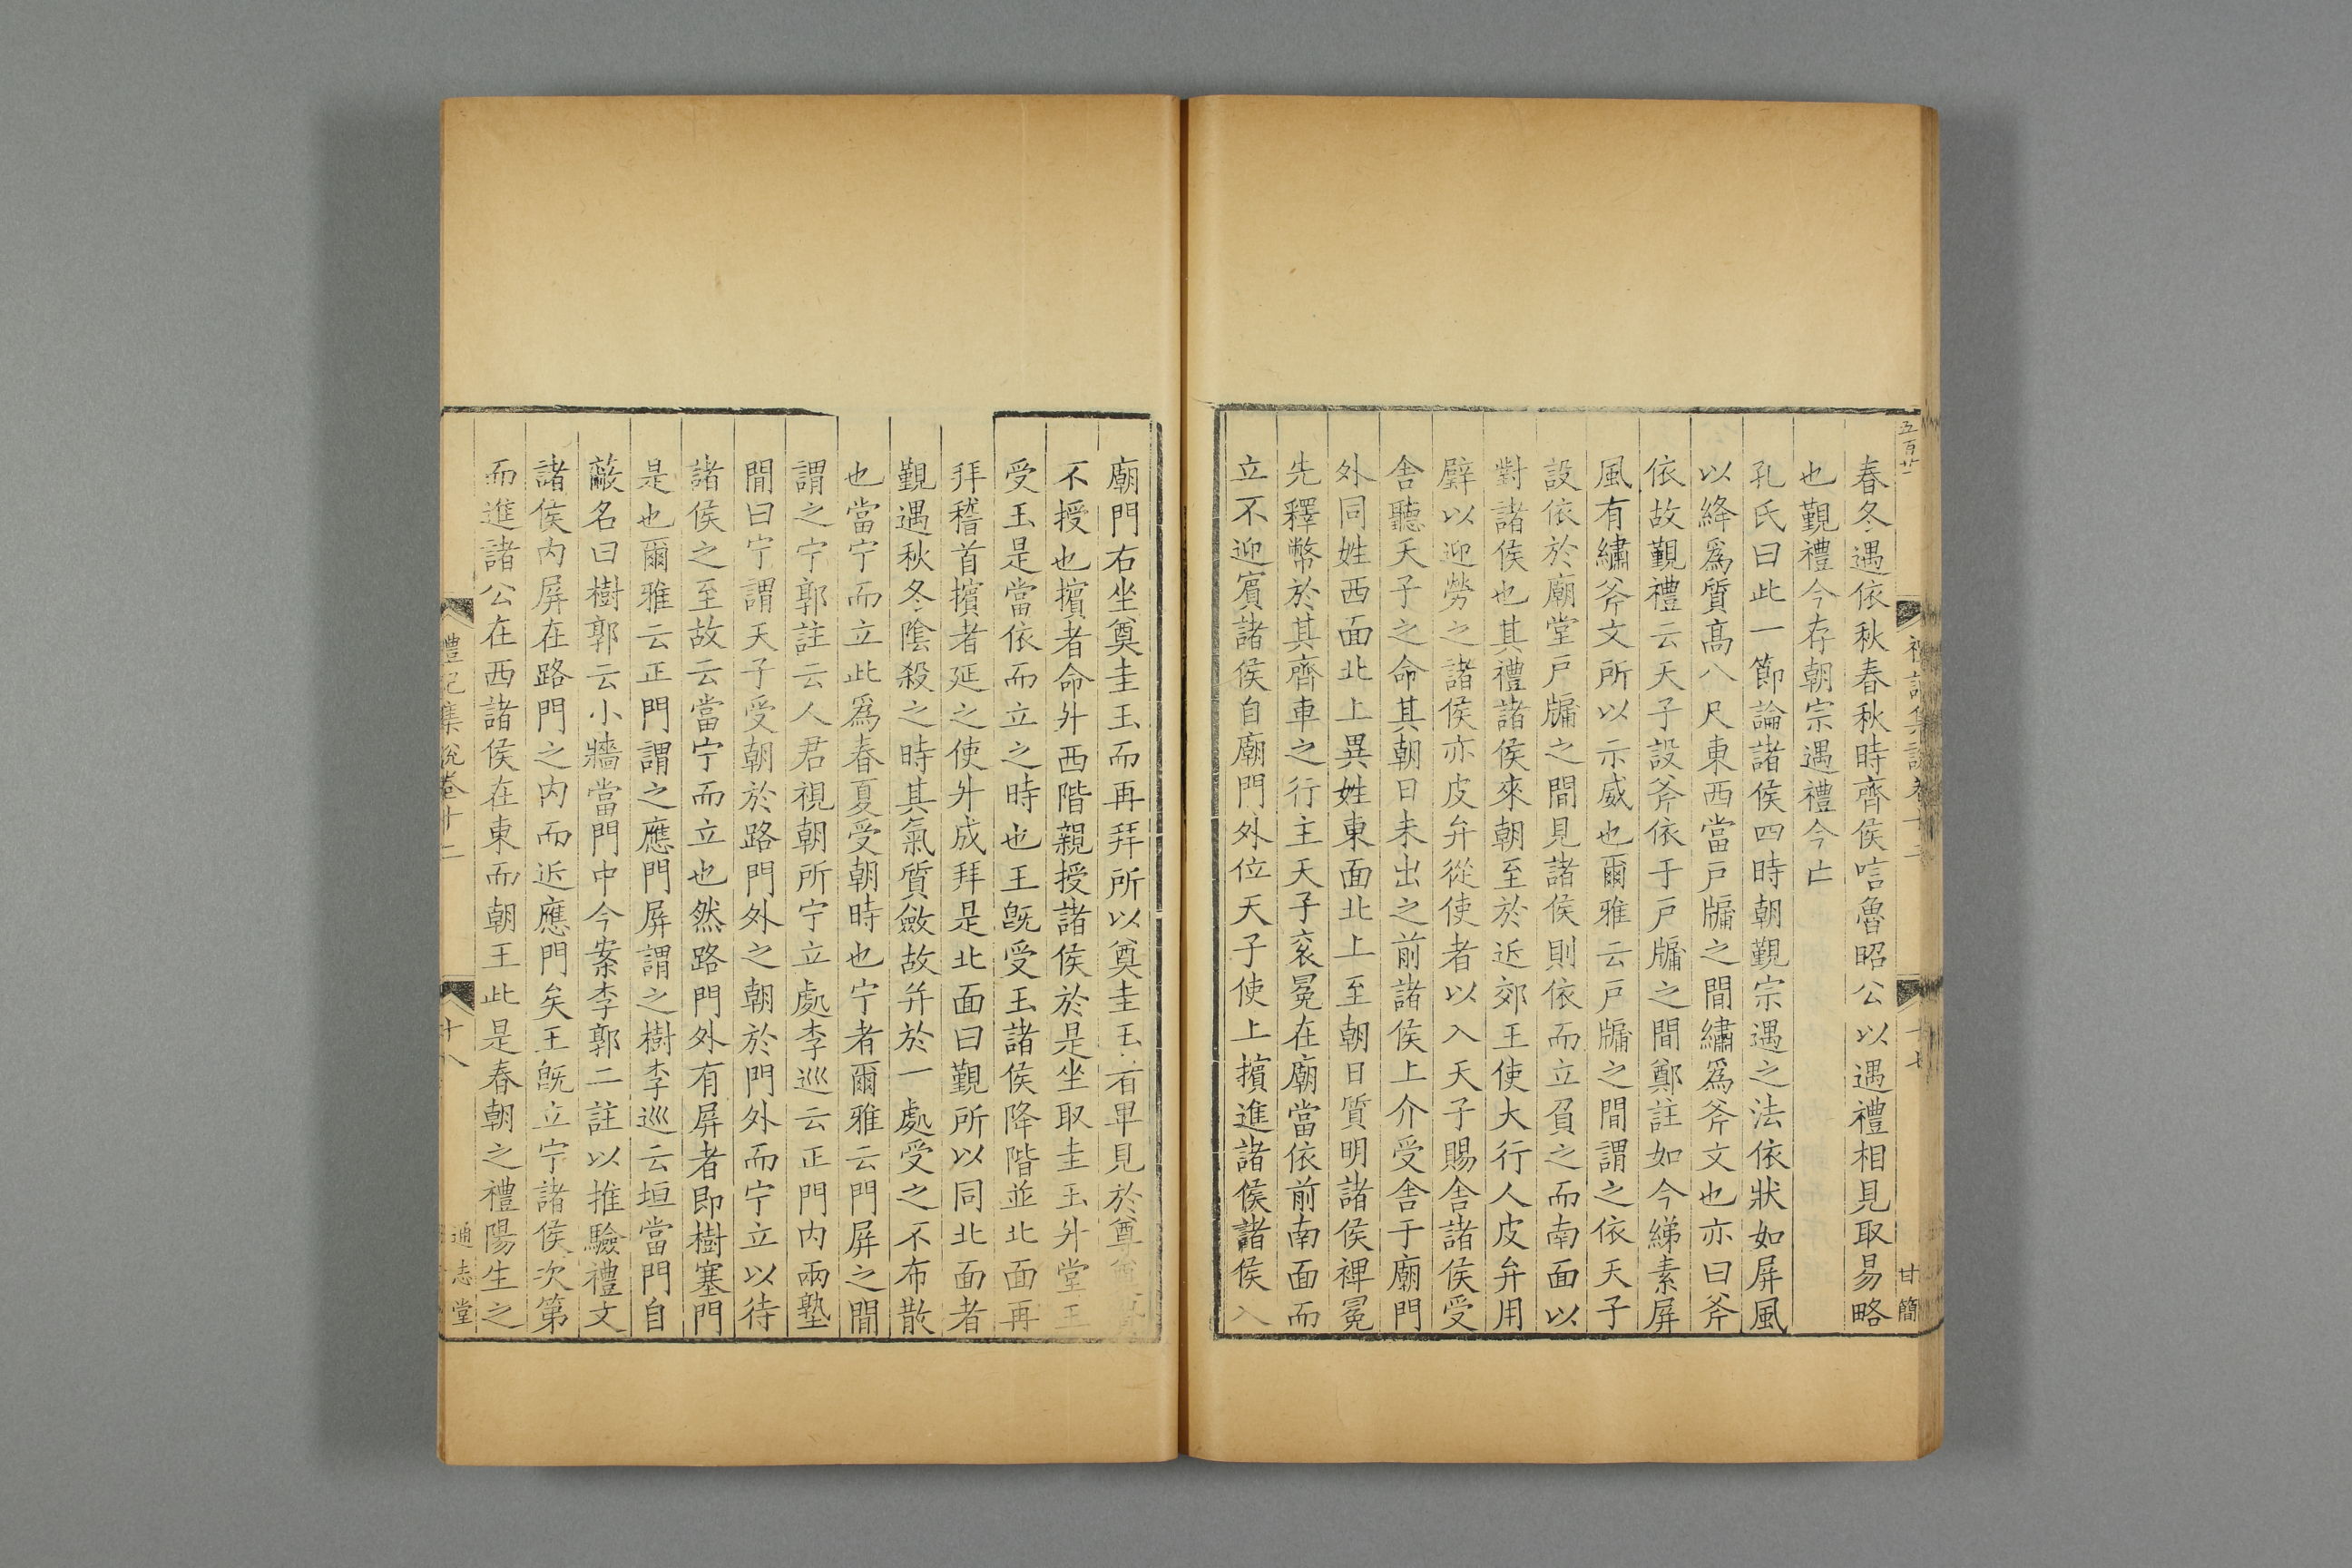 五百廿一
禮記集說卷十二
十七
甘簡
春冬遇依秋春秋時齊侯唁魯昭公以遇禮相見取易略
也覲禮今存朝宗遇禮今亡
孔氏曰此一節論諸侯四時朝覲宗遇之法依狀如屏風
以絳爲質高八尺東西當戶牖之間繡爲斧文也亦曰斧
依故覲禮云天子設斧依于戶牖之間鄭註如今綈素屏
風有繡斧文所以示威也爾雅云戶牖之間謂之依天子
設依於廟堂戶牖之間見諸侯則依而立負之而南面以
對諸侯也其禮諸侯來朝至於近郊王使大行人皮弁用
璧以迎勞之諸侯亦皮弁從使者以入天子賜舍諸侯受
舍聽天子之命其朝日未出之前諸侯上介受舍于廟門
外同姓西面北上異姓東面北上至朝日質明諸侯裨冕
先釋幣於其齊車之行主天子衮冕在廟當依前南面而
立不迎賓諸侯自廟門外位天子使上擯進諸侯諸侯入
廟門右坐奠圭玉而再拜所以奠圭玉者卑見於尊奠
不授也擯者命升西階親授諸侯於是坐取圭玉升堂王
受玉是當依而立之時也王旣受玉諸侯降階並北面再
拜稽首擯者延之使升成拜是北面曰覲所以同北面者
覲遇秋冬陰殺之時其氣質斂故并於一處受之不布散
也當宁而立此爲春夏受朝時也宁者爾雅云門屏之間
謂之宁郭註云人君視朝所宁立處李巡云正門內兩塾
間曰宁謂天子受朝於路門外之朝於門外而宁立以待
諸侯之至故云當宁而立也然路門外有屏者即樹塞門
是也爾雅云正門謂之應門屏謂之樹李巡云垣當門自
蔽名曰樹郭云小牆當門中今案李郭二註以推驗禮文
諸侯內屏在路門之內而近應門矣王旣立宁諸侯次第
而進諸公在西諸侯在東而朝王此是春朝之禮陽生之
禮記集說卷十二
十八
通志堂